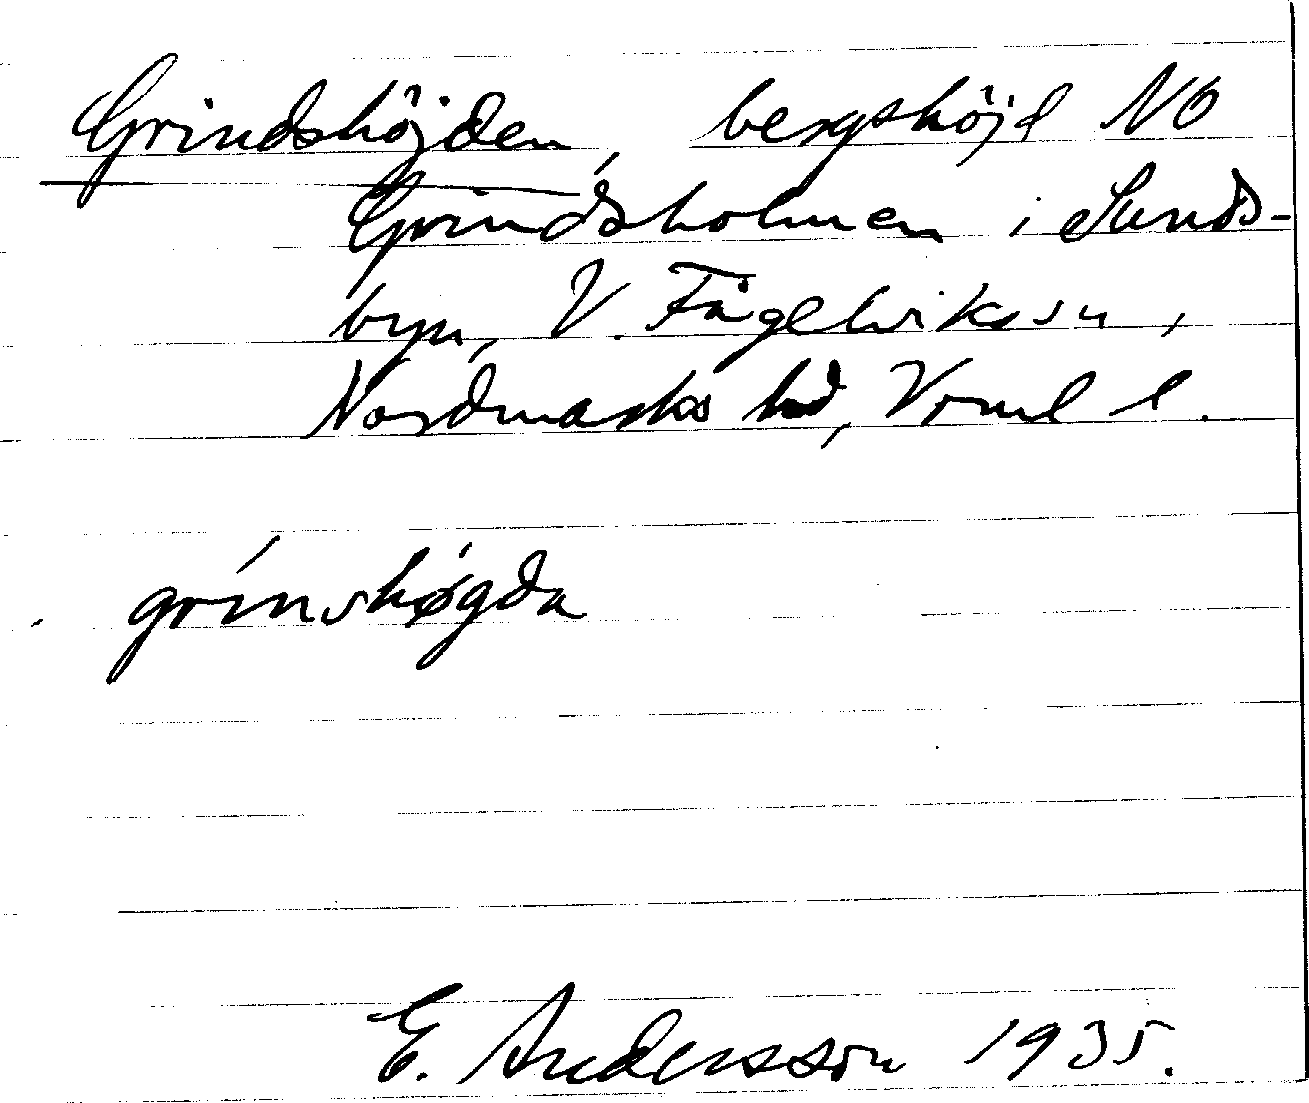 Grindshöjden, bergshöjd NO
Grindsholmen i Sunds-
byn, V. Fågelvikssn,
Nordmarks hd, Vrml l.
grinshøgda
E. Andersson 1935.